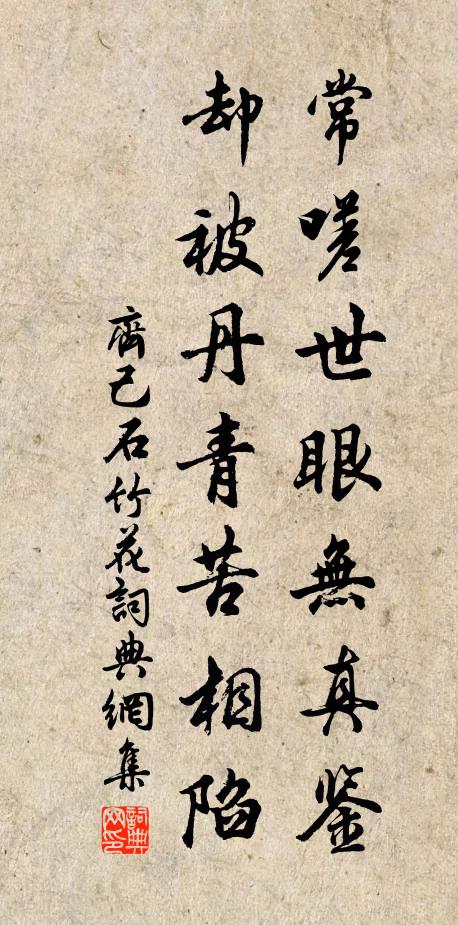 常嗟世眼無真鉴
却被丹青苦相陷
齊己石竹花詞典網集
詞典网印